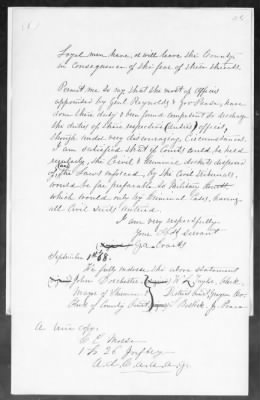 Loyal men have, & will leave the County
in consequence of the fear of their threats.
Permit me to say that the most of officers
appointed by Genl Reynolds & Gov Pease, have
done their duty & been found competent to discharge
the duties of their respective (duties) offices,
though under very discouraging circumstances.
I am satisfied that if Courts could be held
regularly, the Civil & Criminal dockets disposed
of, the Laws enforced, by the Civil tribunals,
would be far preferable to Military
which would only try Criminal Cases, leaving
all Civil suits untried.
I am very respectfully
Your Obt servant
September 1st 68.
We fully endorse the above statement
John Dorchester
Mayor of Sherman
Clerk of County Court
W. Taylor, clerk
District Court Grayson Co.
Justice of Peace
A true copy:
C. E. Morse
1 Lt 26 Infty